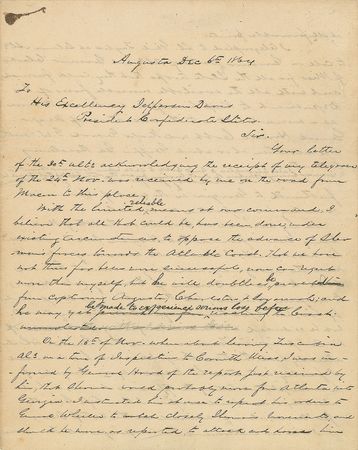 Augusta Dec 6th 1864
To
His Excellency Jefferson Davis
President Confederate States.
Sir.
Your letter
of the 30th ulto acknowledging the receipt of my telegram
of the 24th Nov. was received by me on the road from
Macon to this place.
With the limited reliable means at our command, I
believe that all that could be, has been done, under
existing circumstances, to oppose the advance of Sher
mans forces towards the Atlantic Coast. That we have
not thus far been more successful, none can regret
more than myself, but he will doubtless be prevented
from capturing Augusta, Charleston & Savannah, and
he may yet be made to experience serious loss before
On the 16th of Nov. when about leaving Tuscumbia
Ala on a tour of Inspection to Corinth Miss I was in-
formed by General Hood of the report just received by
him that Sherman would probably move from Atlanta into
Georgia. I instructed him at once to repeat his orders to
General Wheeler to watch closely Shermans movements, and
should he move as reported to attack and harass him